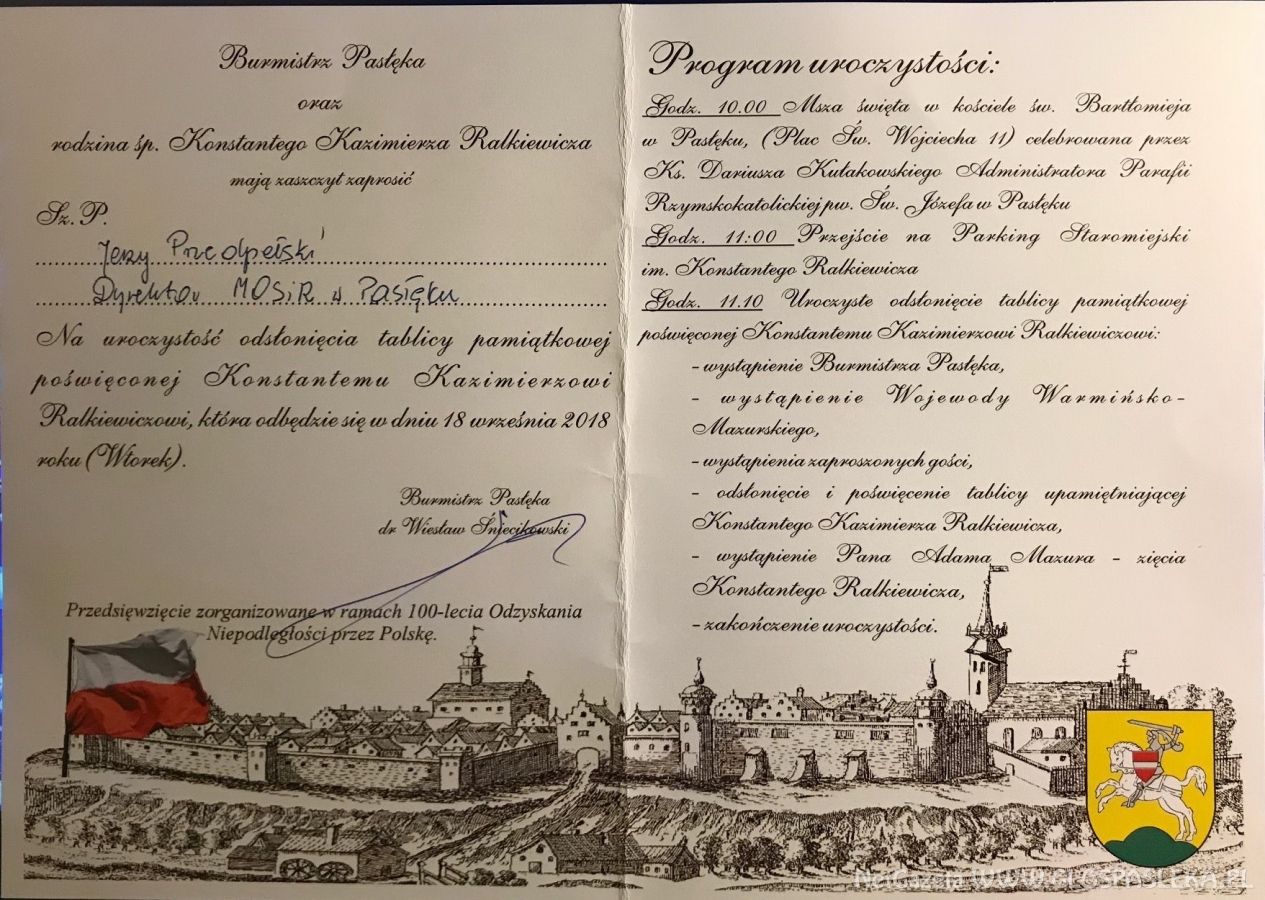 Burmistrz Pasłęka
oraz
rodzina śp. Konstantego Kazimierza Ralkiewicza
mają zaszczyt zaprosić
Sz. P.
Jerzy Przedpełski
Dyrektor MOSiR w Pasłęku
Na uroczystość odsłonięcia tablicy pamiątkowej
poświęconej Konstantemu Kazimierzowi
Ralkiewiczowi, która odbędzie się w dniu 18 września 2018
roku (Wtorek).
Burmistrz Pasłęka
dr Wiesław Śniecikowski
Przedsięwzięcie zorganizowane w ramach 100-lecia Odzyskania
Niepodległości przez Polskę.
Program uroczystości:
Godz. 10.00 Msza święta w kościele św. Bartłomieja
w Pasłęku, (Plac Św. Wojciecha 11) celebrowana przez
Ks. Dariusza Kułakowskiego Administratora Parafii
Rzymskokatolickiej pw. Św. Józefa w Pasłęku
Godz. 11:00 Przejście na Parking Staromiejski
im. Konstantego Ralkiewicza
Godz. 11.10 Uroczyste odsłonięcie tablicy pamiątkowej
poświęconej Konstantemu Kazimierzowi Ralkiewiczowi:
- wystąpienie Burmistrza Pasłęka,
- wystąpienie Wojewody Warmińsko-
Mazurskiego,
- wystąpienia zaproszonych gości,
- odsłonięcie i poświęcenie tablicy upamiętniającej
Konstantego Kazimierza Ralkiewicza,
- wystąpienie Pana Adama Mazura - zięcia
Konstantego Ralkiewicza,
- zakończenie uroczystości.
WWW.GLOSPASLEKA.PL